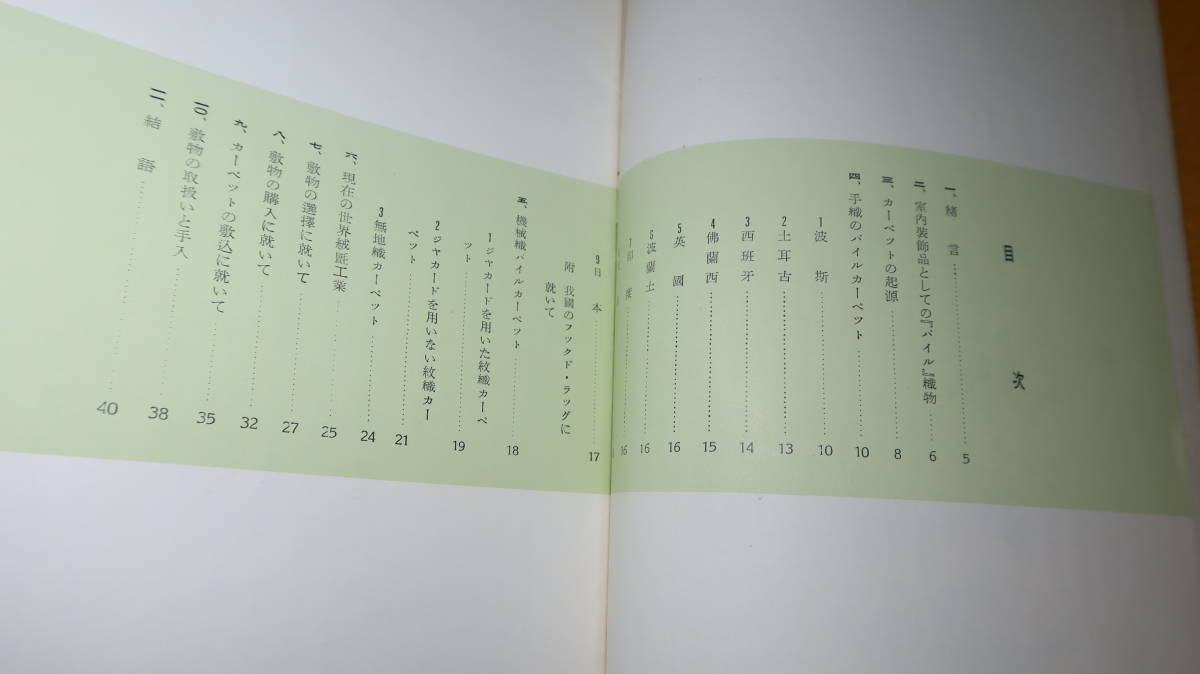 目 次
一、緒 言 5
二、室内装飾品としての『パイル』織物 6
三、カーペットの起源 8
四、手織のパイルカーペット 10
1 波 斯 10
2 土耳古 13
3 西班牙 14
4 佛蘭西 15
5 英 國 16
6 波蘭土 16
7 印 度 16
9 日 本 17
附 我國のフックド・ラッグに
就いて
五、機械織パイルカーペット 18
1 ジャカードを用いた紋織カーペ
ット 19
2 ジャカードを用いない紋織カー
ペット 21
3 無地織カーペット 24
六、現在の世界絨氈工業 25
七、敷物の選擇に就いて 27
八、敷物の購入に就いて 32
九、カーペットの敷込に就いて 35
一〇、敷物の取扱いと手入 38
一一、結 語 40